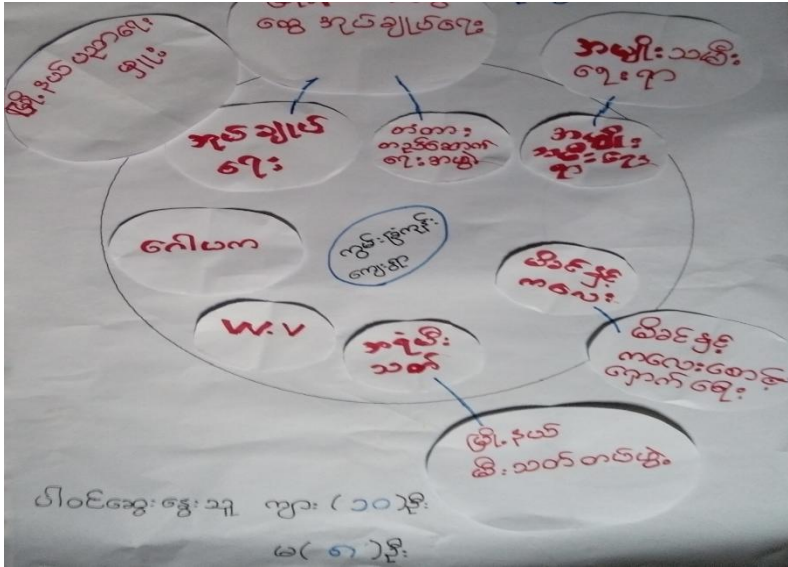 ထွေ အုပ်ချုပ်ရေး
မြို့နယ် ပညာရေး
မှူး
အမျိုးသမီး
ရေးရာ
အုပ်ချုပ်
ရေး
တံတား
တည်ဆောက်
ရေးအဖွဲ့
အမျိုး
သမီးရေး
ရာ
ဂေါပက
ကျွမ်းခြံကုန်း
ကျေးရွာ
မိခင်နှင့်
ကလေး
W.V
အရံမီး
သတ်
မိခင်နှင့်
ကလေးစောင့်
ရှောက်ရေး
မြို့နယ်
မီးသတ်တပ်ဖွဲ့
ပါဝင်ဆွေးနွေးသူ ကျား (၁၀)ဦး
မ( ၈ )ဦး